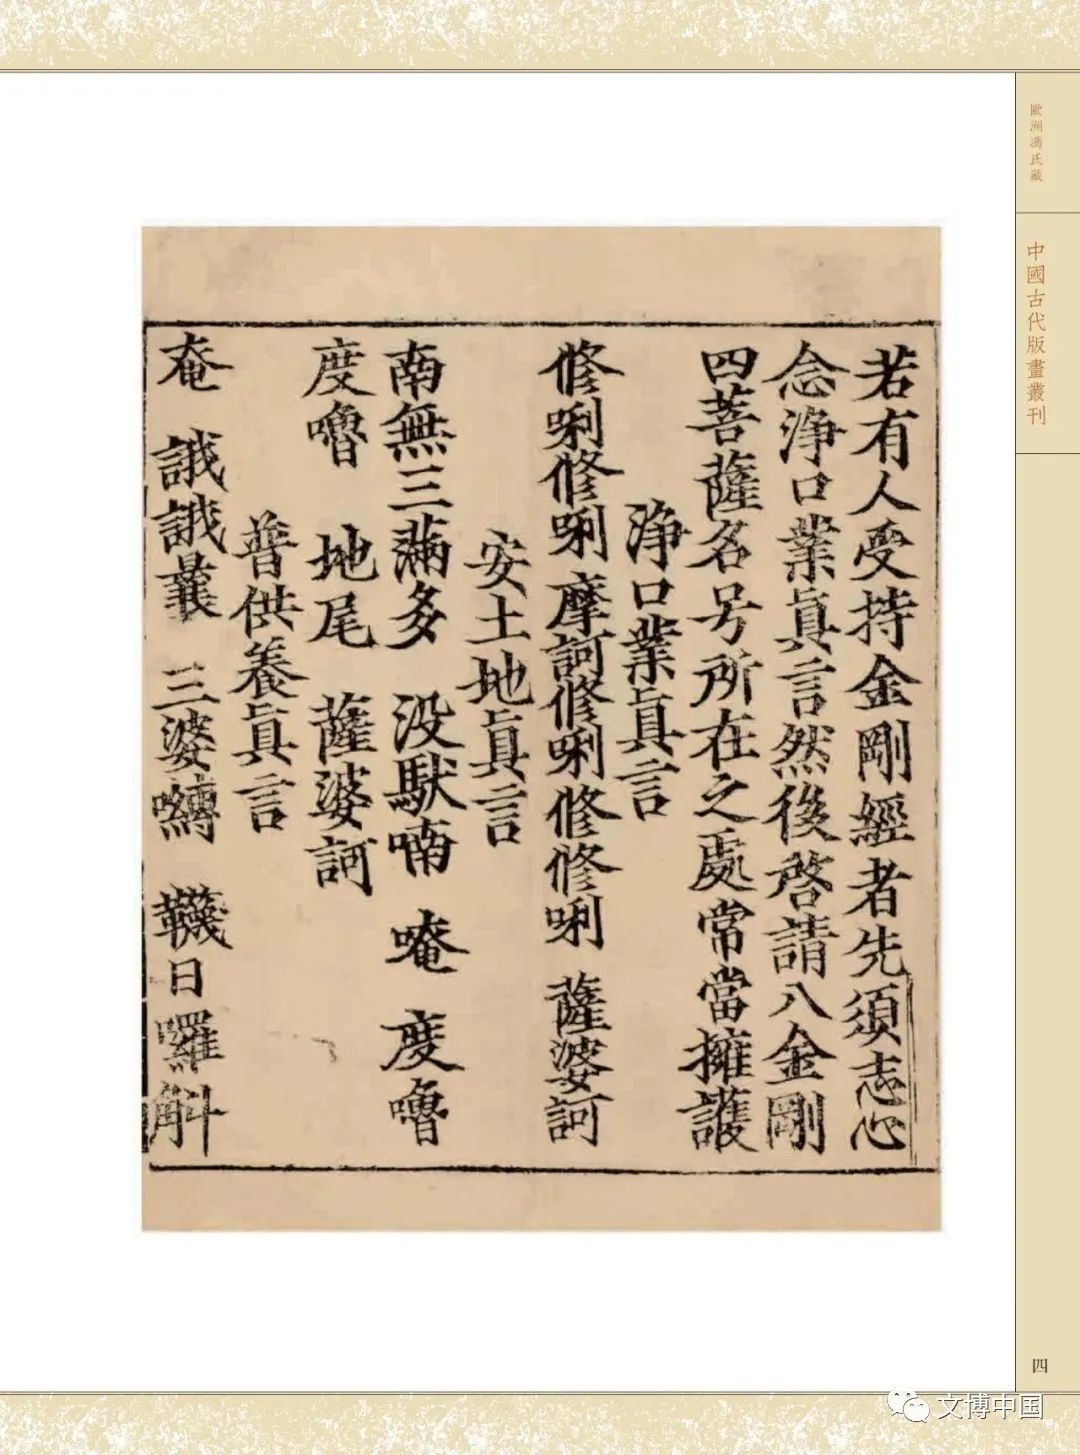 歐洲馮氏藏
中國古代版畫叢刊
若有人受持金剛經者先須志心
念淨口業眞言然後啓請八金剛
四菩薩名号所在之處常當擁護
淨口業眞言
修唎修唎 摩訶修唎 修修唎 薩婆訶
安土地眞言
南無三滿多 没馱喃 唵 度嚕
度嚕 地尾 薩婆訶
普供養眞言
奄 誐誐曩 三婆嚩 韈日囉斛
四
文博中国